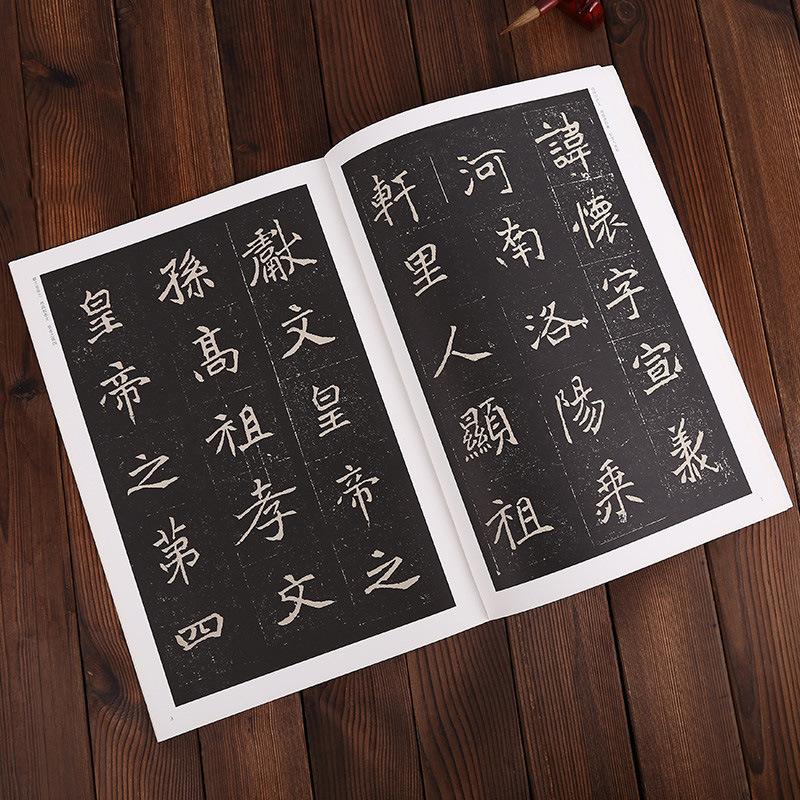 諱懷字宣義
河南洛陽乘
軒里人顯祖
獻文皇帝之
孫高祖孝文
皇帝之第四